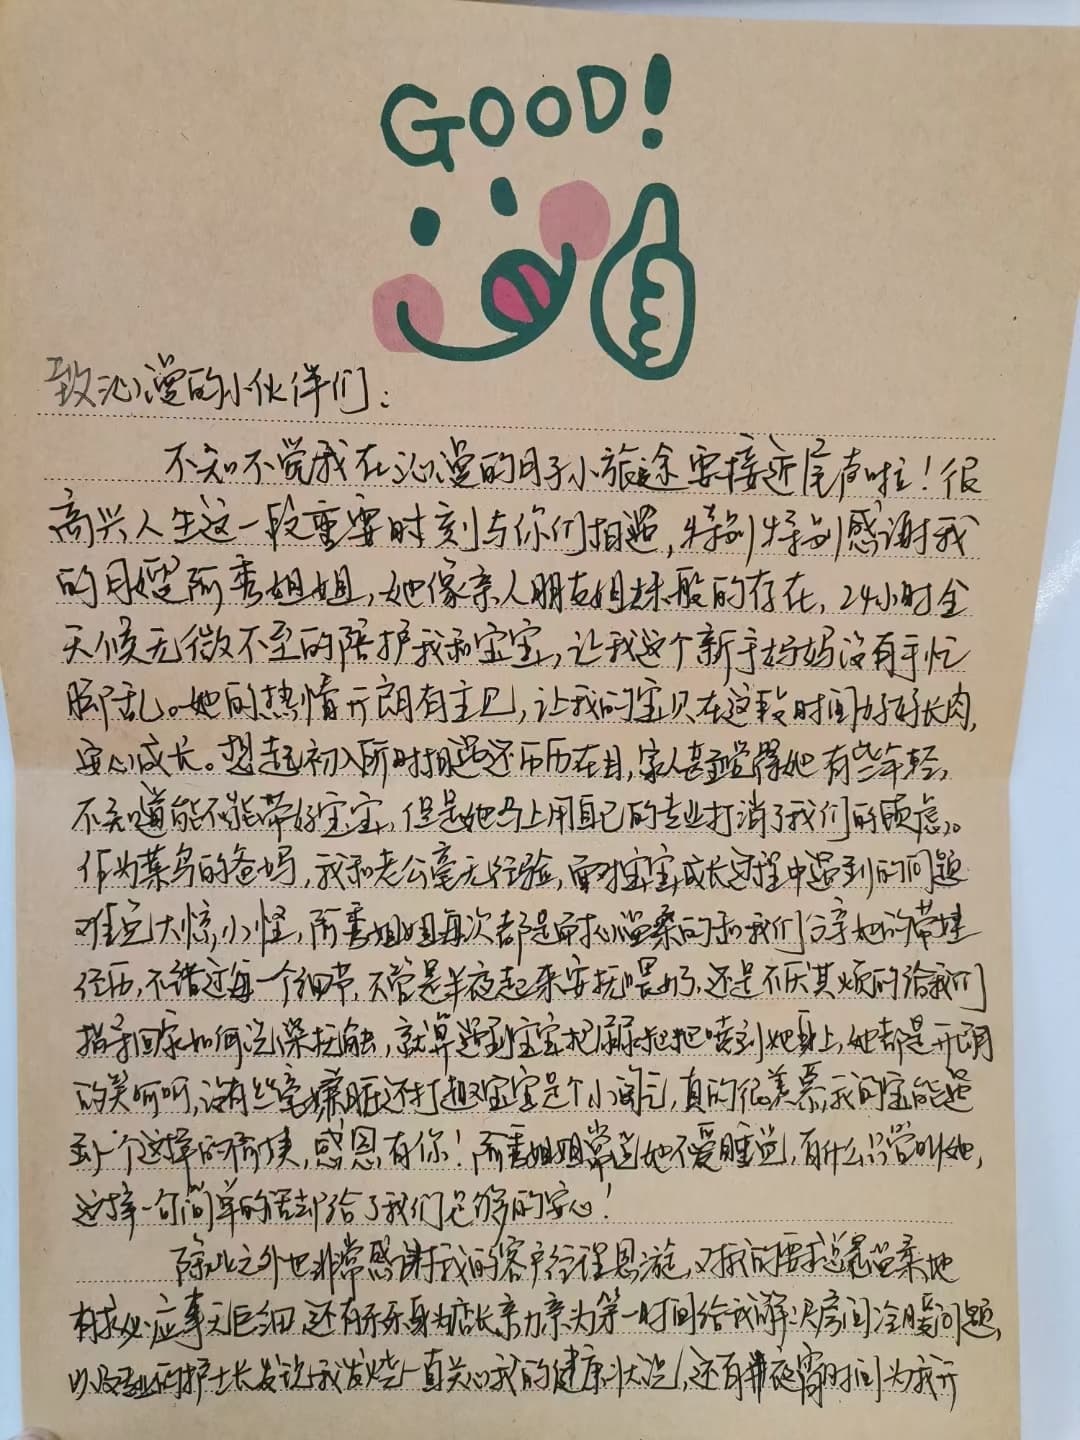 GOOD!
致沁漫的小伙伴们：
不知不觉我在沁漫的月子小旅途要接近尾声啦！很
高兴人生这一段重要时刻与你们相遇，特别特别感谢我
的月嫂阿秀姐姐，她像亲人朋友姐妹般的存在，24小时全
天候无微不至的陪护我和宝宝，让我这个新手妈妈没有手忙
脚乱。她的热情开朗有主见，让我的宝贝在这段时间好好长肉，
安心成长。想起初入所时相遇还历历在目，家人甚至觉得她有些年轻，
不知道能不能带好宝宝，但是她马上用自己的专业打消了我们的顾虑。
作为菜鸟的爸妈，我和老公毫无经验，面对宝宝成长过程中遇到的问题
难免大惊小怪，阿秀姐姐每次都是耐心温柔的和我们分享她的带娃
经历，不错过每一个细节，不管是半夜起来安抚喂奶，还是不厌其烦的给我们
指导回家如何洗澡抚触，就算遇到宝宝把尿尿粑粑喷到她身上，她都是开朗
的笑呵呵，没有丝毫嫌脏还打趣宝宝是个小淘气，真的很羡慕我的宝能遇
到一个这样的阿姨，感恩有你！阿秀姐姐常说她不爱睡觉，有什么只管叫她，
这样一句简单的话却给了我们足够的安心！
除此之外也非常感谢我的客户经理思漩，对我的要求总是温柔地
有求必应事无巨细，还有身为店长亲力亲为第一时间给我解决房间冷暖问题，
以及专业的护士长发现我发烧一直关心我的健康状况，还有夜宵时间为我开